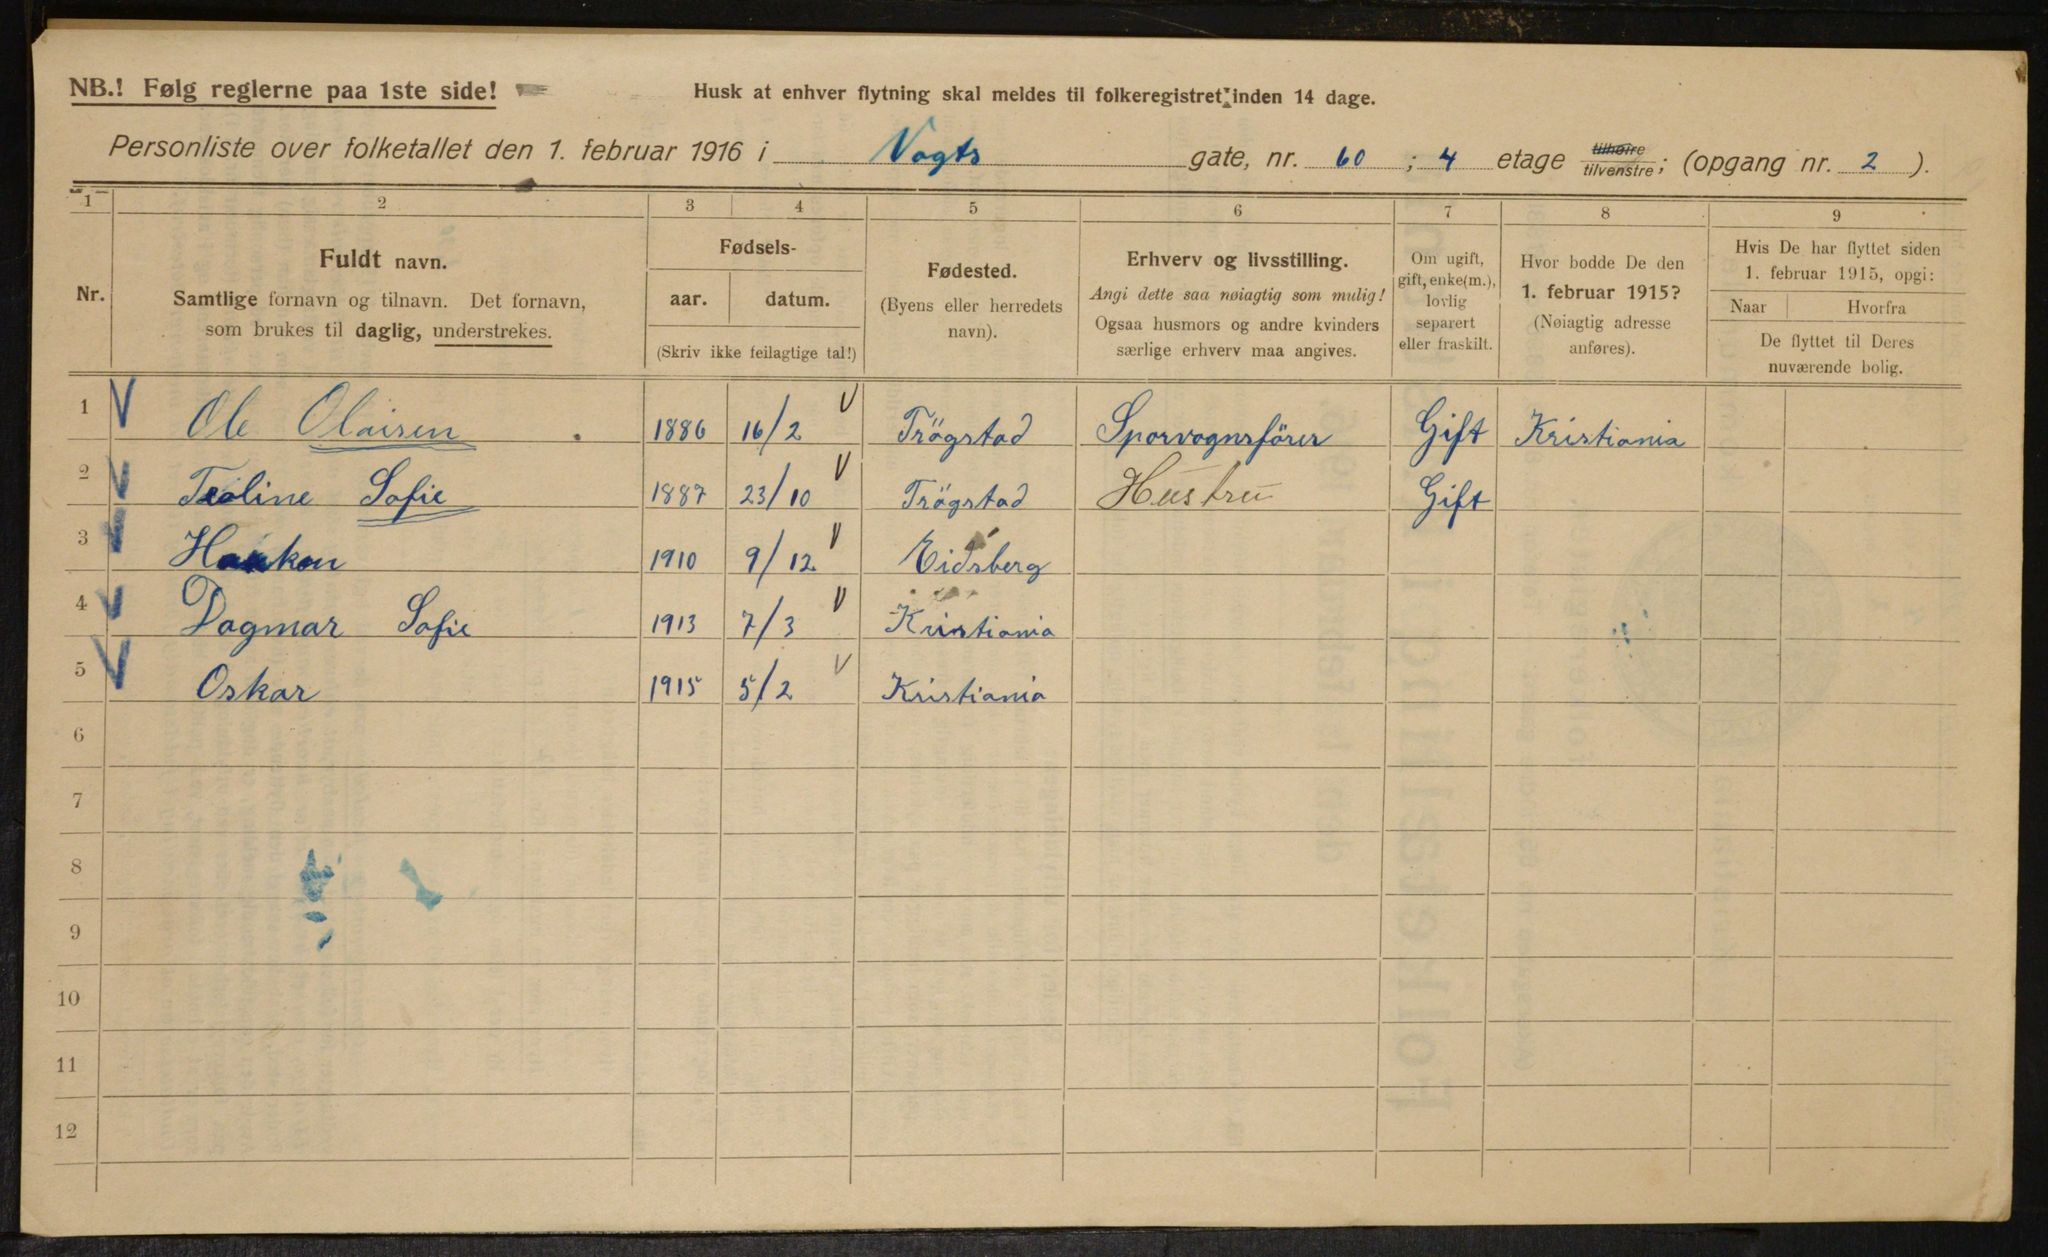 NB.! Følg reglerne paa 1ste side!
Husk at enhver flytning skal meldes til folkeregistret inden 14 dage.
Personliste over folketallet den 1. februar 1916 i Vogts gate, nr. 60 ; 4 etage tilhøire tilvenstre; (opgang nr. 2 ).
1 2 3 4 5 6 7 8 9
Nr.
Fuldt navn.
Samtlige fornavn og tilnavn. Det fornavn,
som brukes til daglig, understrekes.
Fødsels-
aar. datum.
(Skriv ikke feilagtige tal!)
Fødested.
(Byens eller herredets
navn).
Erhverv og livsstilling.
Angi dette saa nøiagtig som mulig!
Ogsaa husmors og andre kvinders
særlige erhverv maa angives.
Om ugift,
gift, enke(m.),
lovlig
separert
eller fraskilt.
Hvor bodde De den
1. februar 1915?
(Nøiagtig adresse
anføres).
Hvis De har flyttet siden
1. februar 1915, opgi:
Naar Hvorfra
De flyttet til Deres
nuværende bolig.
1 Ole Olaisen 1886 16/2 Trögstad Sporvognsförer Gift Kristiania
2 Teoline Sofie 1887 23/10 Trögstad Hustru Gift
3 Haakon 1910 9/12 Eidsberg
4 Dagmar Sofie 1913 7/3 Kristiania
5 Oskar 1915 5/2 Kristiania
6
7
8
9
10
11
12